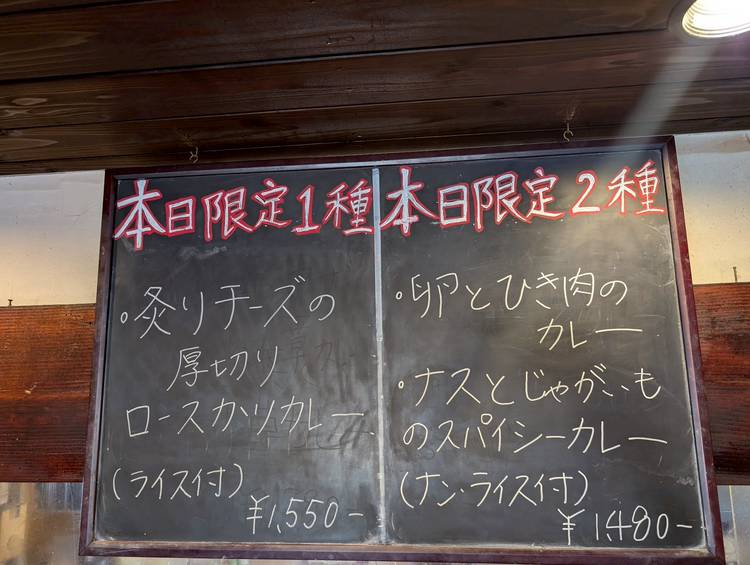 本日限定1種
・炙りチーズの
厚切り
ロースカツカレー
(ライス付)
¥1,550-
本日限定2種
・卵とひき肉の
カレー
・ナスとじゃがいも
のスパイシーカレー
(ナン・ライス付)
¥1,480-